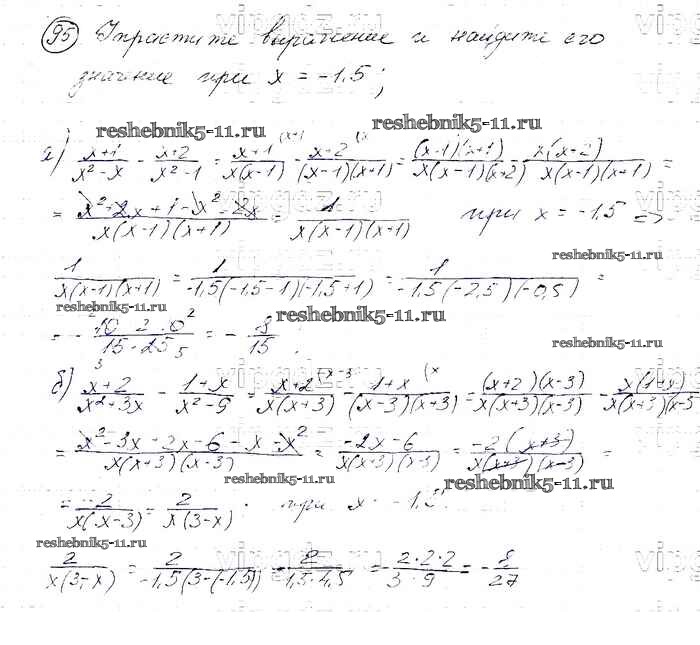 95 Упростите выражение и найдите его
значение при x = -1,5;
reshebnik5-11.ru reshebnik5-11.ru
а) (x+1)/(x²-x) - (x+2)/(x²-1) = (x+1)/(x(x-1)) - (x+2)/((x-1)(x+1)) = (x+1)(x+1)/(x(x-1)(x+2)) - x(x+2)/(x(x-1)(x+1)) =
= (x²+2x+1-x²-2x)/(x(x-1)(x+1)) = 1/(x(x-1)(x+1)) при x = -1,5 =>
reshebnik5-11.ru
1/(x(x-1)(x+1)) = 1/(-1,5(-1,5-1)(-1,5+1)) = 1/(-1,5(-2,5)(-0,5)) =
reshebnik5-11.ru reshebnik5-11.ru
= - = - 8/15.
reshebnik5-11.ru
б) (x+2)/(x²+3x) - (1+x)/(x²-9) = (x+2)/(x(x+3)) - (1+x)/((x-3)(x+3)) = (x+2)(x-3)/(x(x+3)(x-3)) - x(1+x)/(x(x+3)(x-3)
= (x²-3x+2x-6-x-x²)/(x(x+3)(x-3)) = (-2x-6)/(x(x+3)(x-3)) = -2(x+3)/(x(x+3)(x-3)) =
reshebnik5-11.ru reshebnik5-11.ru
= -2/(x(x-3)) = 2/(x(3-x)). при x = -1,5.
reshebnik5-11.ru
2/(x(3-x)) = 2/(-1,5(3-(-1,5))) = 2/(1,5·4,5) = -(2·2·2)/(3·9) = -8/27